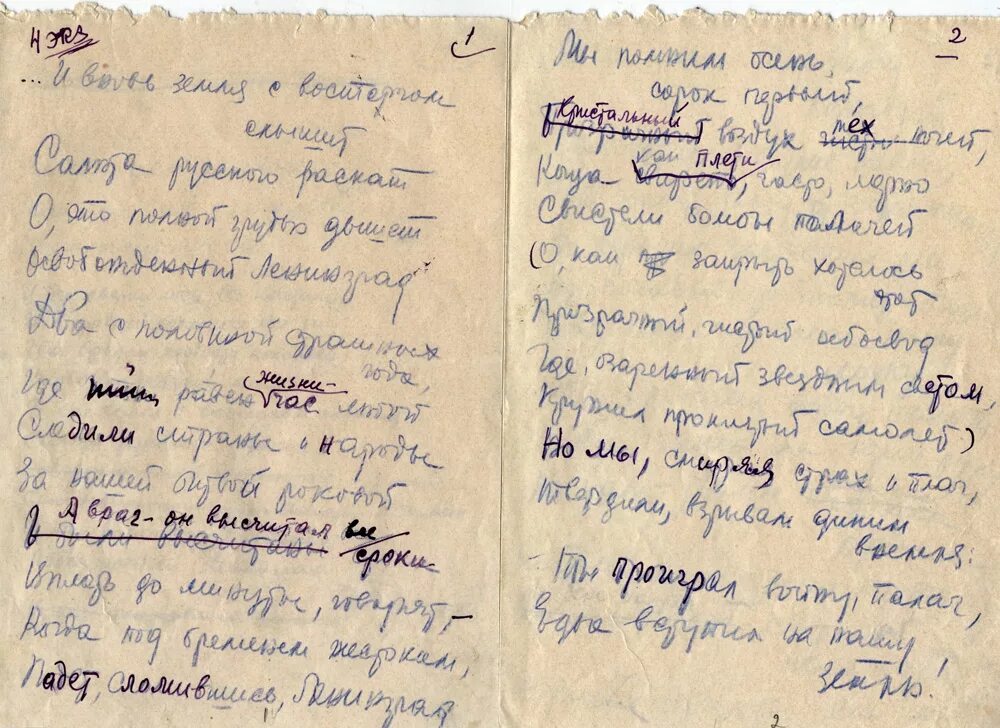 4 экз
1
... И вновь земля с восторгом
слышит
Салюта русского раскат
О, это полной грудью дышит
Освобожденный Ленинград
Два с половиной страшных
года,
Где был равен жизни час любой
Следили страны и народы
За нашей битвой роковой
А враг - он высчитал все
И были высчитаны сроки
Вплоть до минуты, говорят, -
Когда под бременем жестоким,
Падет, сломившись, Ленинград
2
Мы помним осень,
сорок первый,
Кристальный
Прозрачный воздух тех ночей,
как плети
Когда часто, мерно
Свистели бомбы палачей
(О, как закрыть хотелось
этот
Прозрачный, чистый небосвод
Где, озаренный звездным светом,
Кружил проклятый самолет)
Но мы, смиряя страх и плач,
Твердили, взрывам диким
внемля:
- Ты проиграл войну, палач,
Едва вступил на нашу
землю!
2